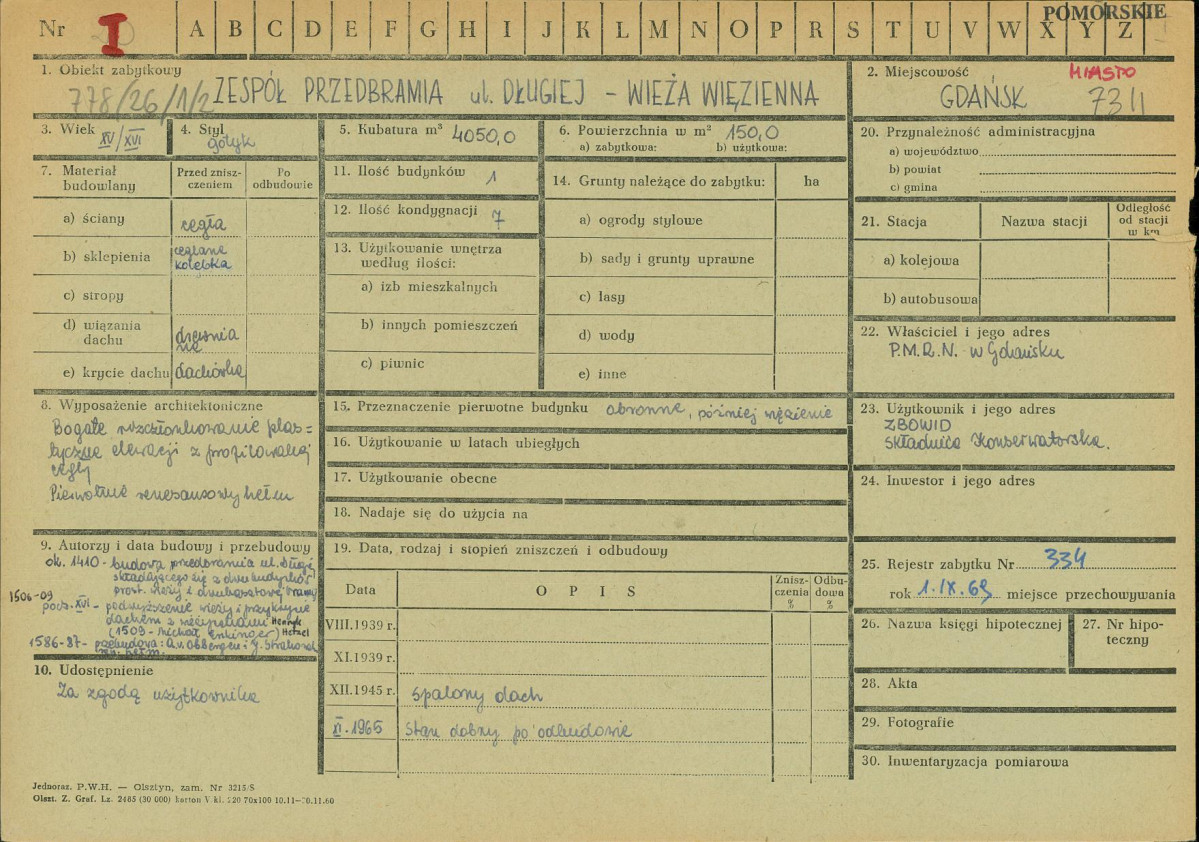 POMORSKIE
Nr I A B C D E F G H I J K L M N O P R S T U V W X Y Z
1. Obiekt zabytkowy
778/26/1/2 ZESPÓŁ PRZEDBRAMIA ul. DŁUGIEJ – WIEŻA WIĘZIENNA
2. Miejscowość MIASTO
GDAŃSK
3. Wiek
XV/XVI
4. Styl
gotyk
5. Kubatura m³ 4050,0
6. Powierzchnia w m² 150,0
a) zabytkowa: b) użytkowa:
7. Materiał budowlany
Przed znisz-
czeniem
Po
odbudowie
a) ściany cegła
b) sklepienia ceglane
kolebka
c) stropy
d) wiązania
dachu drewnia
ne
e) krycie dachu dachówka
8. Wyposażenie architektoniczne
Bogate rozczłonkowanie plas=
tyczne elewacji z profilowanej
cegły
Pierwotnie renesansowy hełm
9. Autorzy i data budowy i przebudowy
ok. 1410 - budowa przedbramia ul. Długiej
składającego się z dwu budynków
prost. wieży i
1506-09
pocz. XVI – podwyższenie wieży i przykrycie
dachem z wieżyczkami Henryk
(1508 - Michał Enkinger) Hetzel
1586-87- przebudowa: A.v. Obbergen i J. Strakowski
10. Udostępnienie
Za zgodą użytkownika
11. Ilość budynków 1
12. Ilość kondygnacji 7
13. Użytkowanie wnętrza
według ilości:
a) izb mieszkalnych
b) innych pomieszczeń
c) piwnic
14. Grunty należące do zabytku: ha
a) ogrody stylowe
b) sady i grunty uprawne
c) lasy
d) wody
e) inne
15. Przeznaczenie pierwotne budynku obronne, później więzienie
16. Użytkowanie w latach ubiegłych
17. Użytkowanie obecne
18. Nadaje się do użycia na
19. Data, rodzaj i stopień zniszczeń i odbudowy
Data O P I S Znisz-
czenia
% Odbu-
dowa
%
VIII.1939 r.
XI.1939 r.
XII.1945 r. spalony dach
XI.1965 Stan dobry po odbudowie
20. Przynależność administracyjna
a) województwo
b) powiat
c) gmina
21. Stacja Nazwa stacji Odległość
od stacji
w km
a) kolejowa
b) autobusowa
22. Właściciel i jego adres
P.M.R.N. w Gdańsku
23. Użytkownik i jego adres
ZBOWID
Składnica Konserwatorska.
24. Inwestor i jego adres
25. Rejestr zabytku Nr 334
rok 1.IX.69 miejsce przechowywania
26. Nazwa księgi hipotecznej
27. Nr hipo-
teczny
28. Akta
29. Fotografie
30. Inwentaryzacja pomiarowa
Jednoraz. P.W.H. — Olsztyn, zam. Nr 3215/S
Olszt. Z. Graf. Lz. 2485 (30 000) karton V kl. 220 70x100 10.11—30.11.60